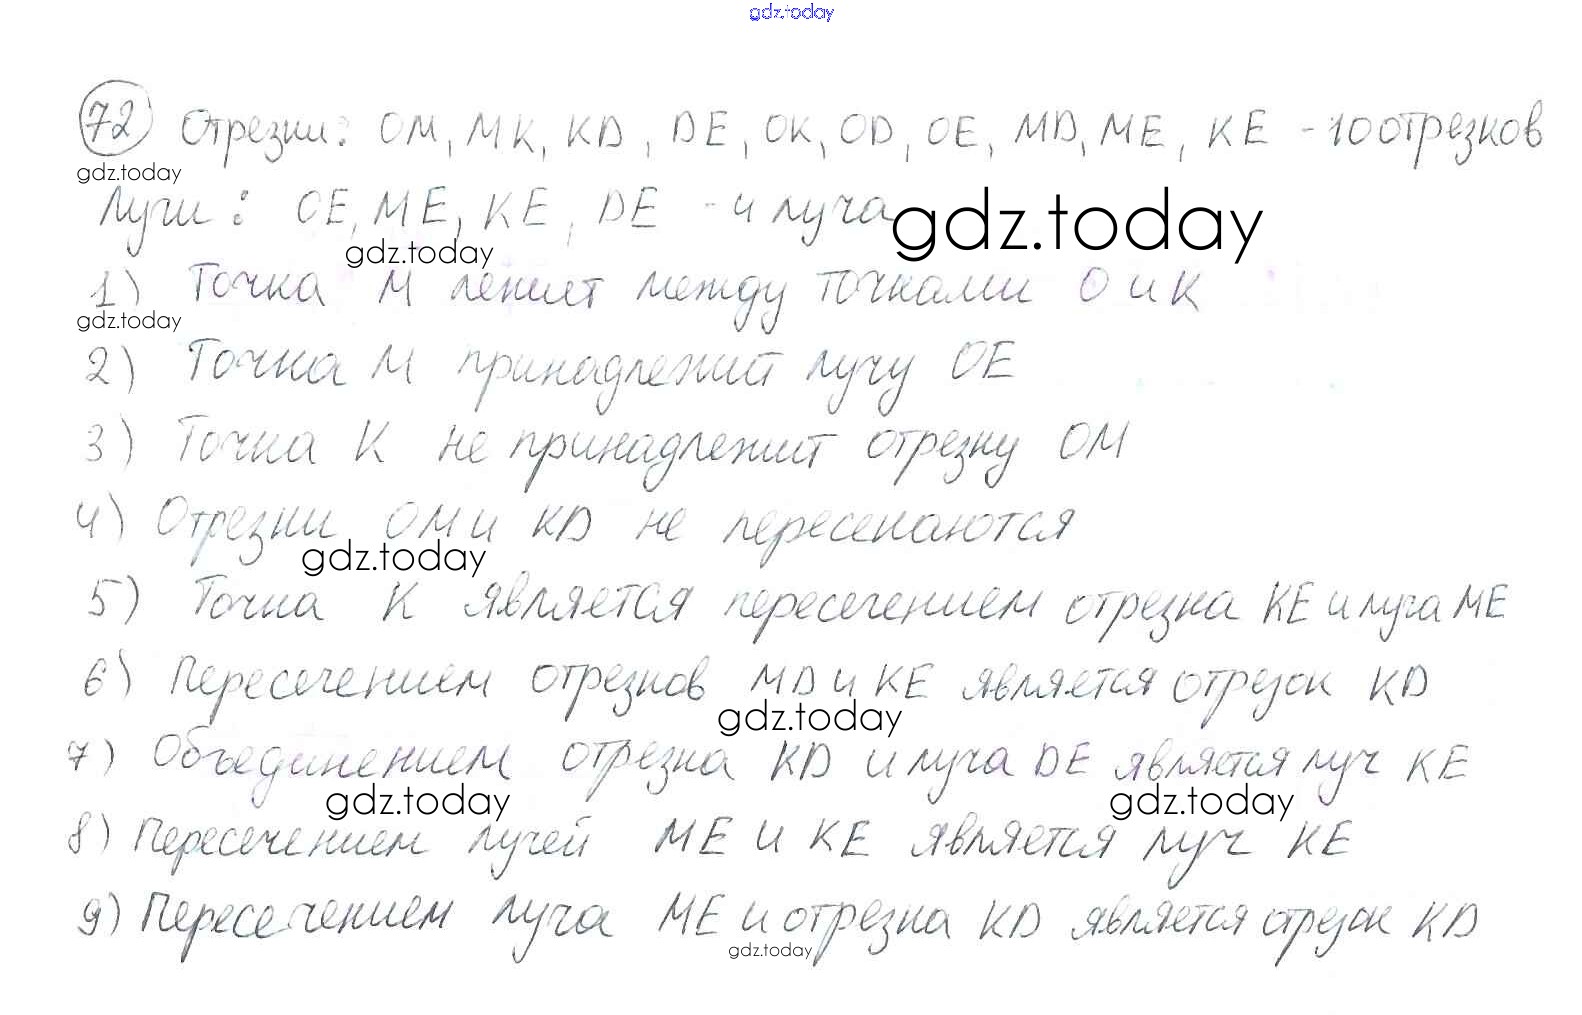 gdz.today
72 Отрезки: OM, MK, KD, DE, OK, OD, OE, MD, ME, KE - 10 отрезков
gdz.today
Лучи: OE, ME, KE, DE - 4 луча
gdz.today
gdz.today
1) Точка M лежит между точками O и K
gdz.today
2) Точка M принадлежит лучу OE
3) Точка K не принадлежит отрезку OM
4) Отрезки OM и KD не пересекаются
gdz.today
5) Точка K является пересечением отрезка KE и луча ME
6) Пересечением отрезков MD и KE является отрезок KD
gdz.today
7) Объединением отрезка KD и луча DE является луч KE
gdz.today gdz.today
8) Пересечением лучей ME и KE является луч KE
9) Пересечением луча ME и отрезка KD является отрезок KD
gdz.today